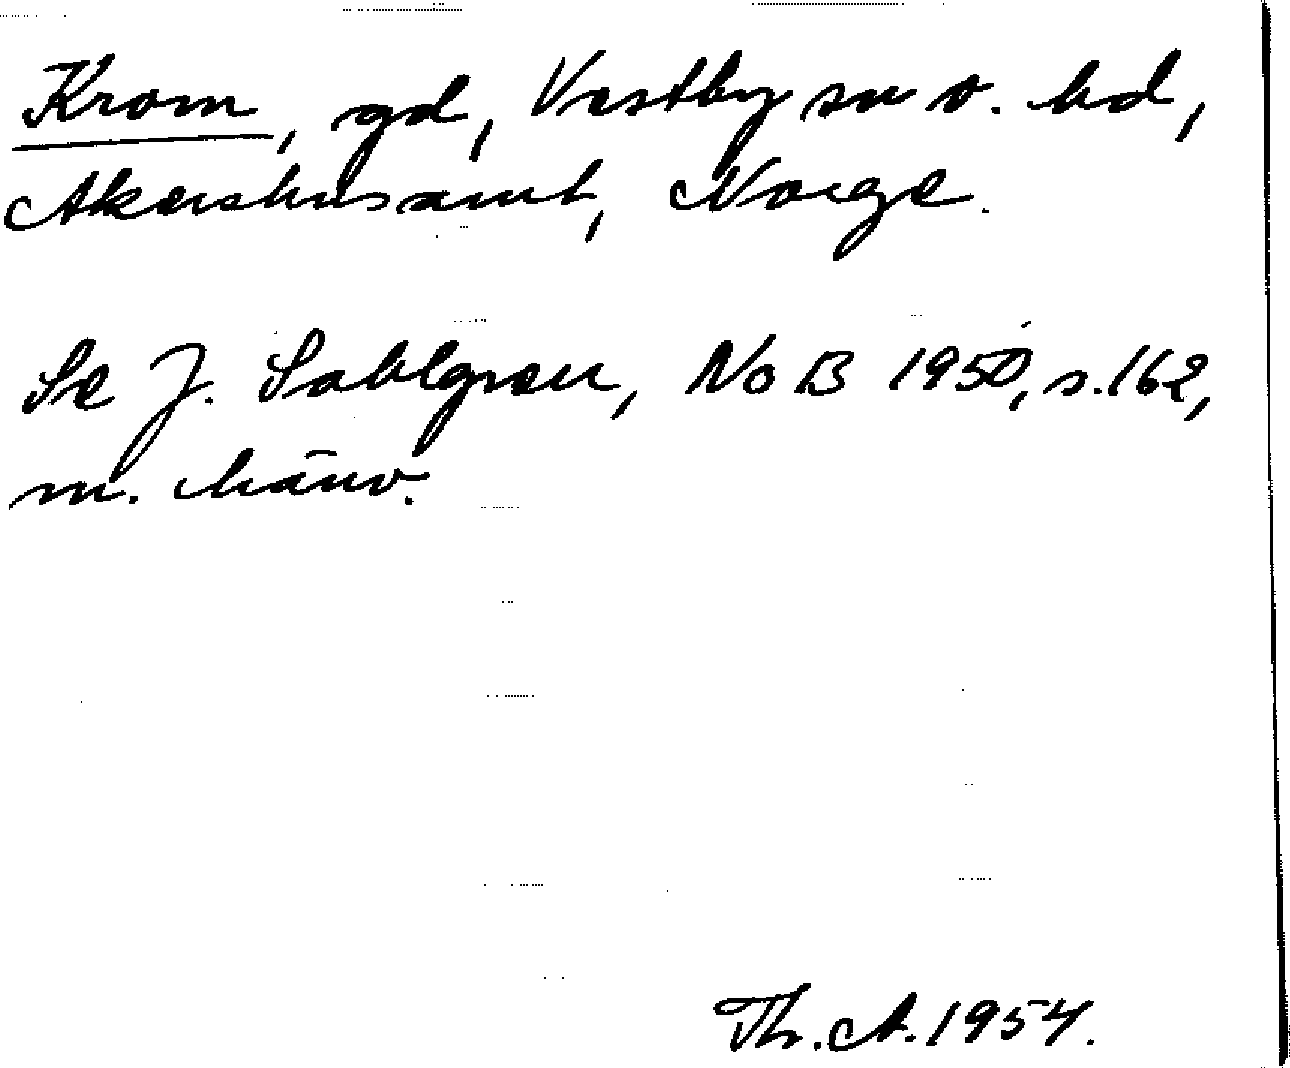 Krom, gd, Vestby sn o. hd,
Akershus amt, Norge.
Se J. Sahlgren, NoB 1950, s. 162,
m. hänv.
Th. A. 1954.